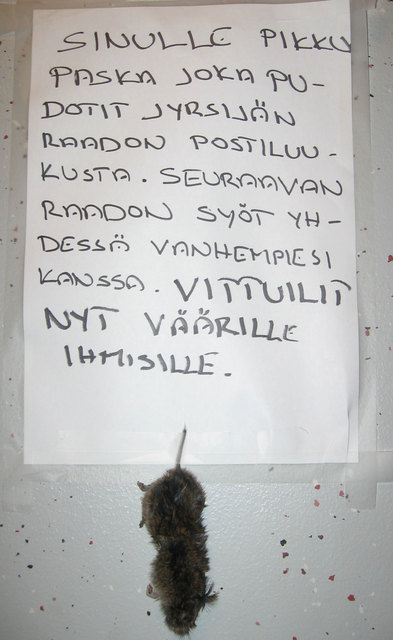 SINULLE PIKKU
PASKA JOKA PU-
DOTIT JYRSIJÄN
RAADON POSTILUU-
KUSTA. SEURAAVAN
RAADON SYÖT YH-
DESSÄ VANHEMPIESI
KANSSA. VITTUILIT
NYT VÄÄRILLE
IHMISILLE.